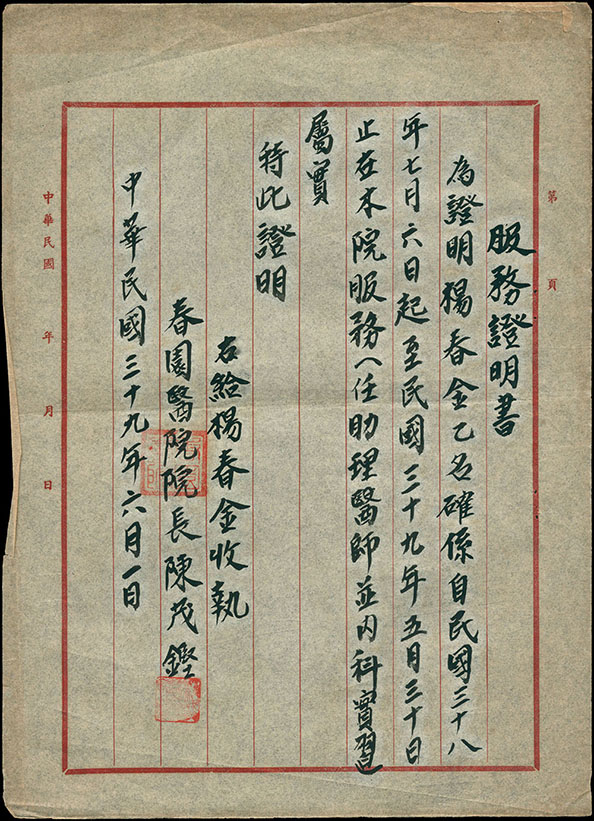 第　頁
服務證明書
為證明楊春金乙名確係自民國三十八
年七月六日起至民國三十九年五月三十日
止在本院服務（任助理醫師並內科實習
屬實
特此證明
右給楊春金收執
春園醫院院長陳茂鏗
中華民國三十九年六月一日
中華民國　年　月　日